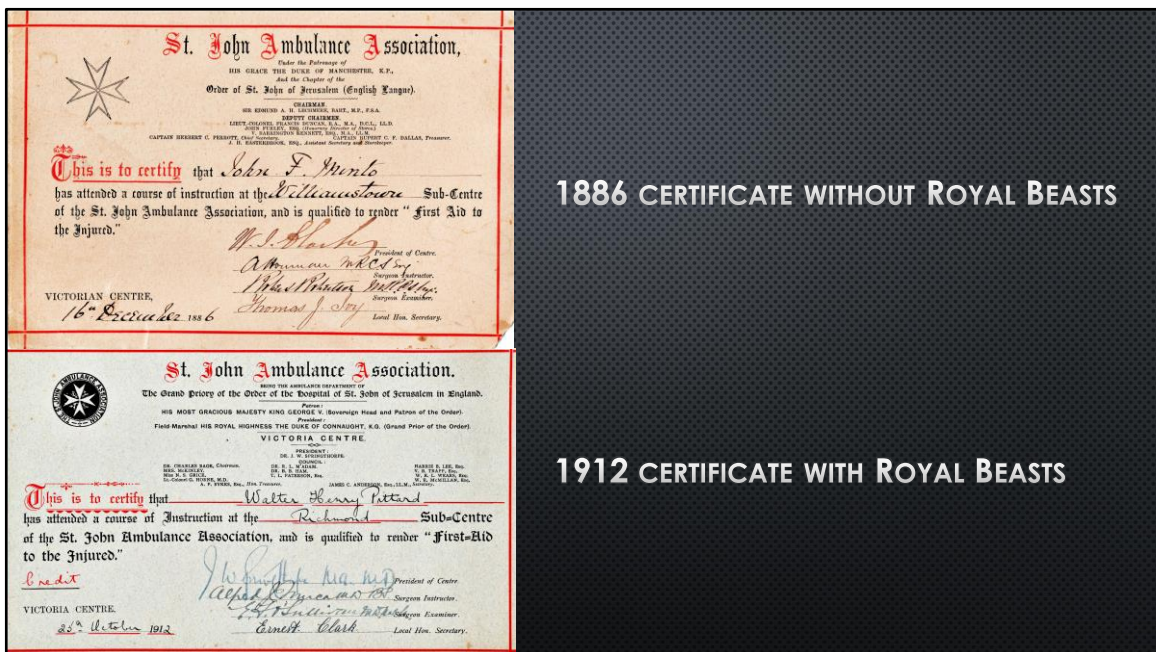 St. John Ambulance Association,
Under the Patronage of
HIS GRACE THE DUKE OF MANCHESTER, K.P.,
And the Chapter of the
Order of St. John of Jerusalem (English Langue).
CHAIRMAN
SIR EDMUND A. H. LECHMERE, BART., M.P., F.S.A.
DEPUTY CHAIRMEN.
LIEUT.-COLONEL FRANCIS DUNCAN, R.A., M.A., D.C.L., LL.D.
JOHN FURLEY, ESQ. (Honorary Director of Stores.)
V. BARRINGTON KENNETT, ESQ., M.A., LL.M.
CAPTAIN HERBERT C. PERROTT, Chief Secretary. CAPTAIN RUPERT C. P. DALLAS, Treasurer.
J. H. EASTERBROOK, ESQ., Assistant Secretary and Storekeeper.
This is to certify that John F. Minto
has attended a course of instruction at the Williamstown Sub-Centre
of the St. John Ambulance Association, and is qualified to render " First Aid to
the Injured."
President of Centre.
Surgeon Instructor.
Surgeon Examiner.
VICTORIAN CENTRE,
16th December 1886
Thomas J. Joy
Local Hon. Secretary.
1886 CERTIFICATE WITHOUT ROYAL BEASTS
THE ST JOHN AMBULANCE ASSOCIATION
St. John Ambulance Association.
BEING THE AMBULANCE DEPARTMENT OF
The Grand Priory of the Order of the Hospital of St. John of Jerusalem in England.
Patron:
HIS MOST GRACIOUS MAJESTY KING GEORGE V. (Sovereign Head and Patron of the Order).
President:
Field-Marshal HIS ROYAL HIGHNESS THE DUKE OF CONNAUGHT, K.G. (Grand Prior of the Order).
VICTORIA CENTRE.
PRESIDENT:
DR. J. W. SPRINGTHORPE.
COUNCIL:
This is to certify that Walter Henry Pittard
has attended a course of Instruction at the Richmond Sub=Centre
of the St. John Ambulance Association, and is qualified to render " First=Aid
to the Injured."
Credit
President of Centre.
Surgeon Instructor.
Surgeon Examiner.
VICTORIA CENTRE.
25th October 1912
Ernest Clark
Local Hon. Secretary.
1912 CERTIFICATE WITH ROYAL BEASTS